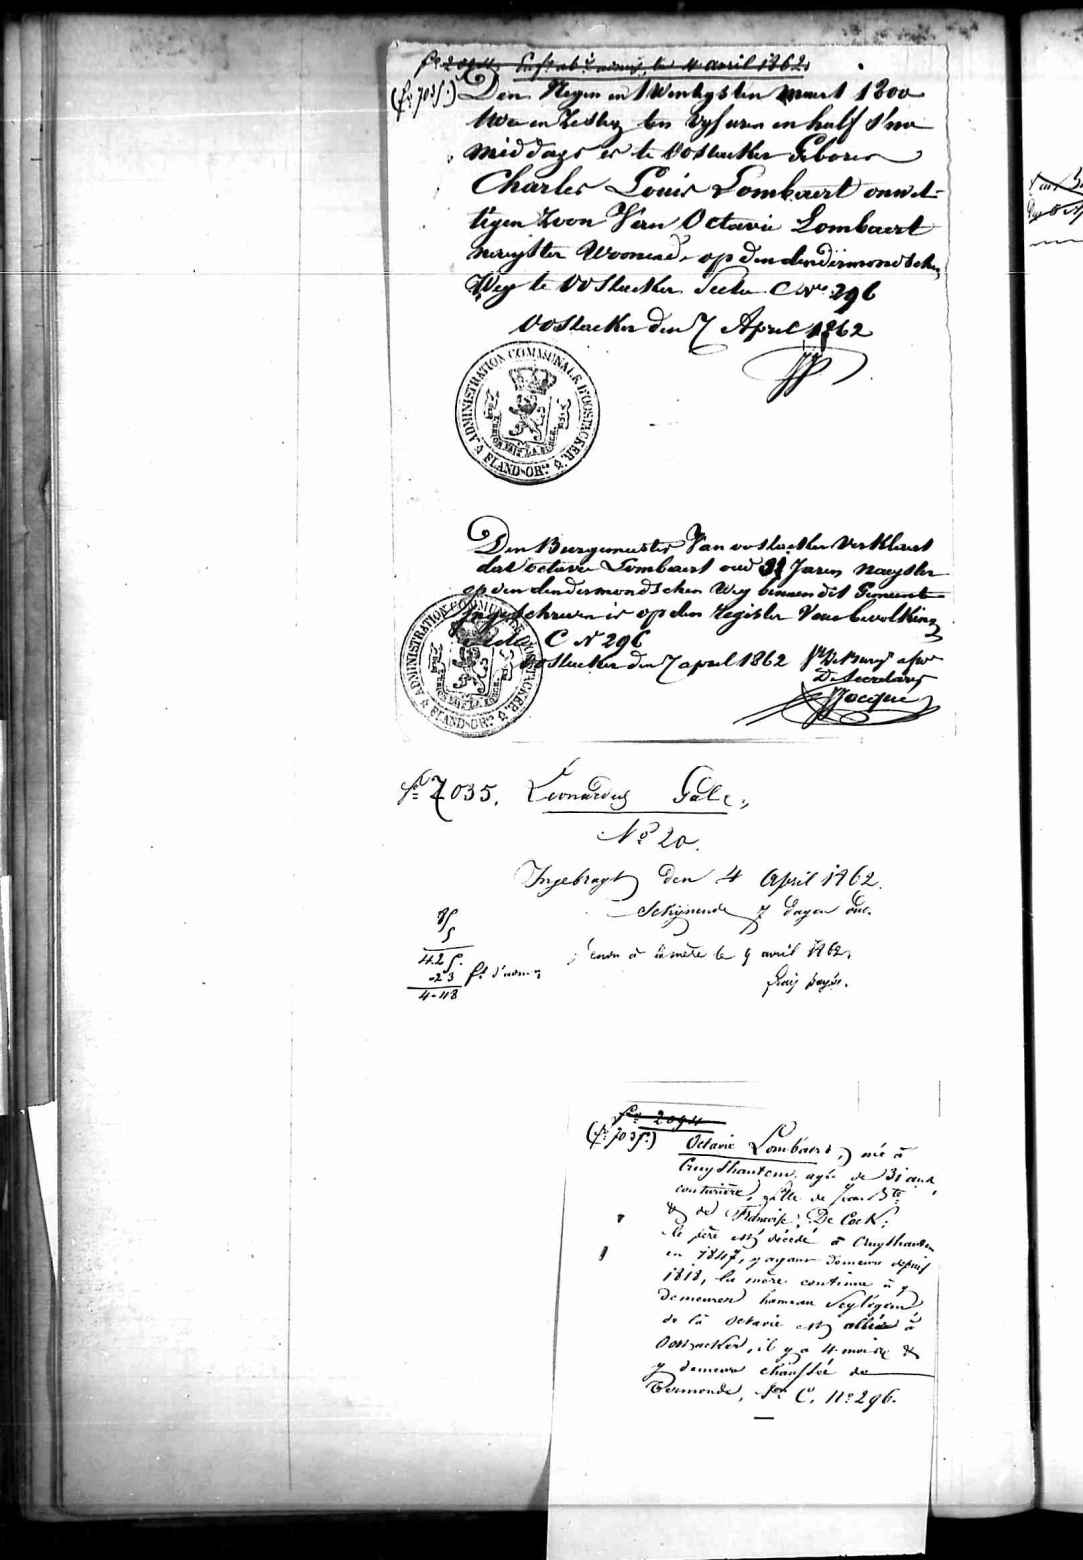 le 4 avril 1862.
(f° 7035.) Den Negen en twentigsten maert 1800
twee en zestig ten vyf uren en half s'na
middags is te Oostacker Geboren
Charles Louis Lombaert onwet-
tigen zoon Van Octavie Lombaert
nayster Woonende op den dendermondschen
Weg te Oostacker Sectie C No 296
Oostacker den 7 April 1862
ADMINISTRATION COMMUNALE D'OOSTACKER.
FLAND-ORle
Den Burgemeester Van oostacker Verklaert
dat octavie Lombaert oud 31 Jaren nayster
op den dendermondschen Weg binnen dit Gemeente
ingeschreven is op den Register Van bevolking
Sectie C N 296
oostacker den 7 april 1862
De Secretaris
ADMINISTRATION COMMUNALE D'OOSTACKER.
FLAND-ORle
f° 7035. Leonardus Gale,
N° 20.
Ingebragt den 4 April 1862.
Schijnende 7 dagen oud.
85
5
425.
-23
4-48
à sa mère le 9 avril 1862.
frais payés.
f° 2094
(f° 7035.) Octavie Lombaert, née à
Cruyshautem, agée de 31 ans,
couturière, fille de Jean Bte
& de Françoise De Cock.
le père est décédé à Cruyshautem
en 1847, y ayant demeuré depuis
1818, la mère continue à y
demeurer hameau
de là Octavie est allée à
Oostacker, il y a 4 mois &
y demeure chaussée de
Termonde, Son C. N° 296.